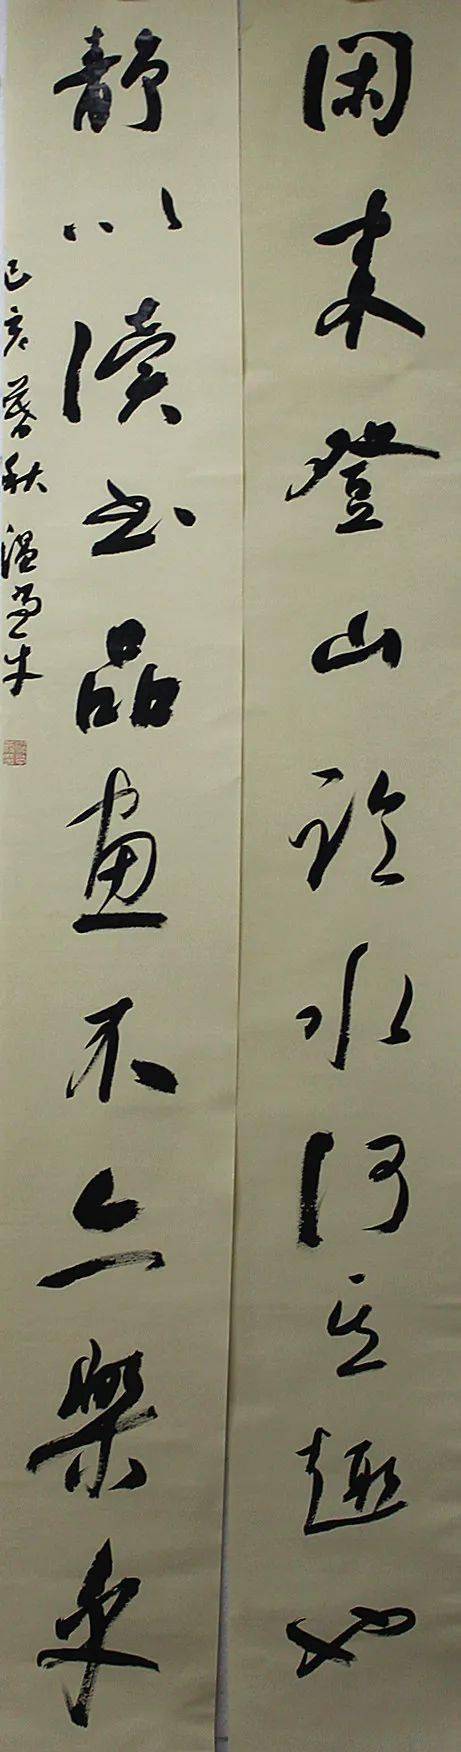 閑来登山臨水何其趣也
静以读书品画不亦樂乎
己亥暮秋温